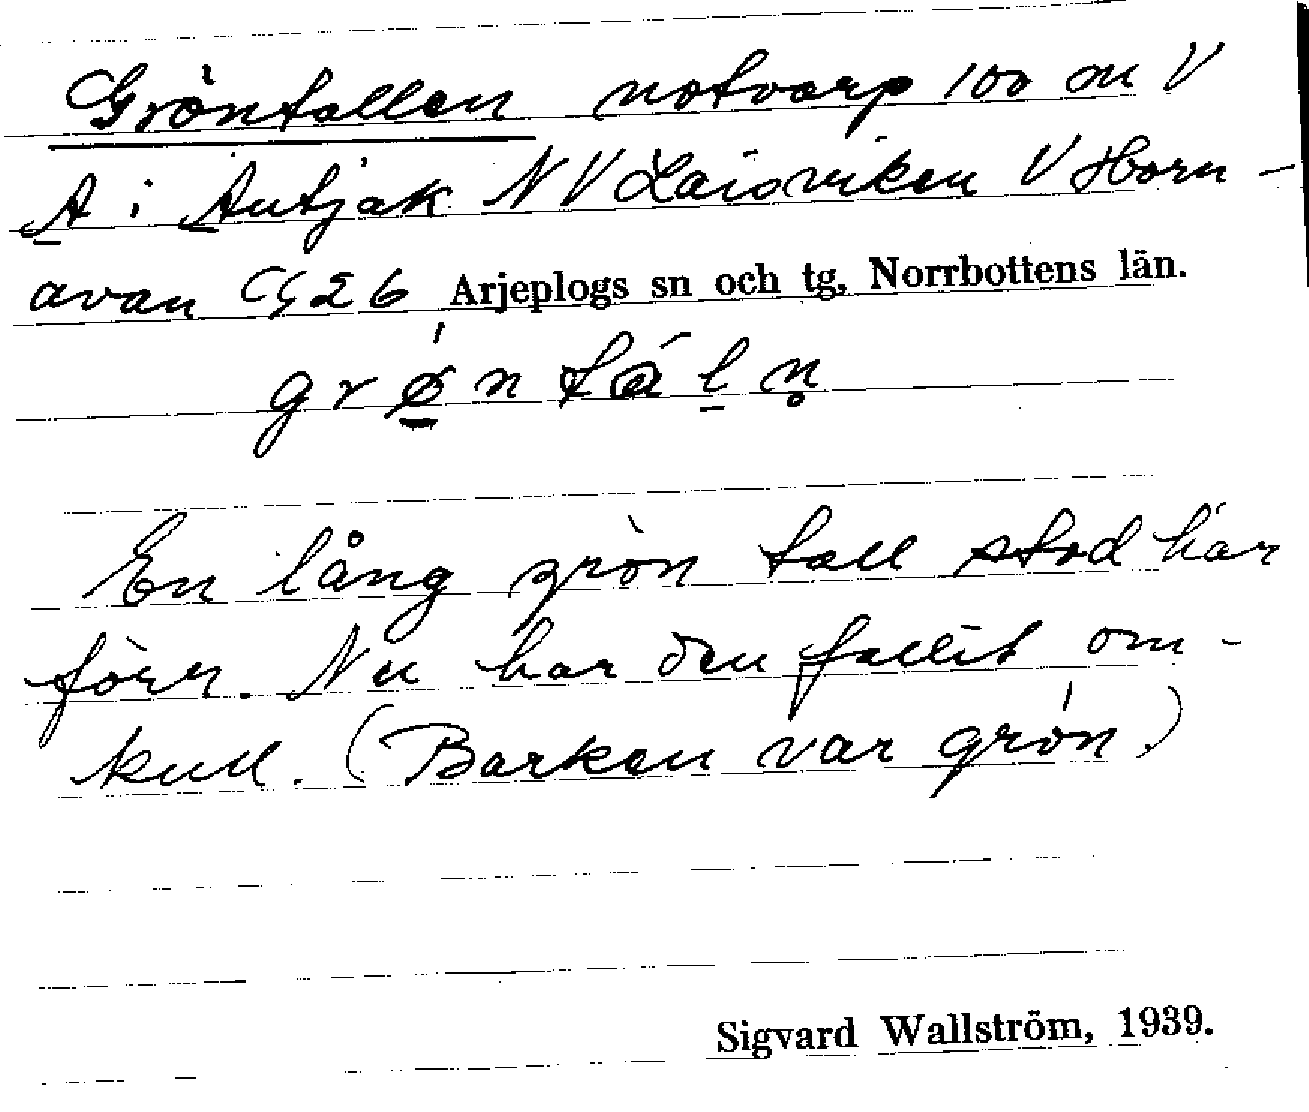 Gröntallen notvarp 100 m V
A i Autjak NV Laisviken V Horn-
avan C926 Arjeplogs sn och tg, Norrbottens län.
grǿ̱ntáḻn̥
En lång grön tall stod här
förr. Nu har den fallit om-
kull. (Barken var grön.)
Sigvard Wallström, 1939.